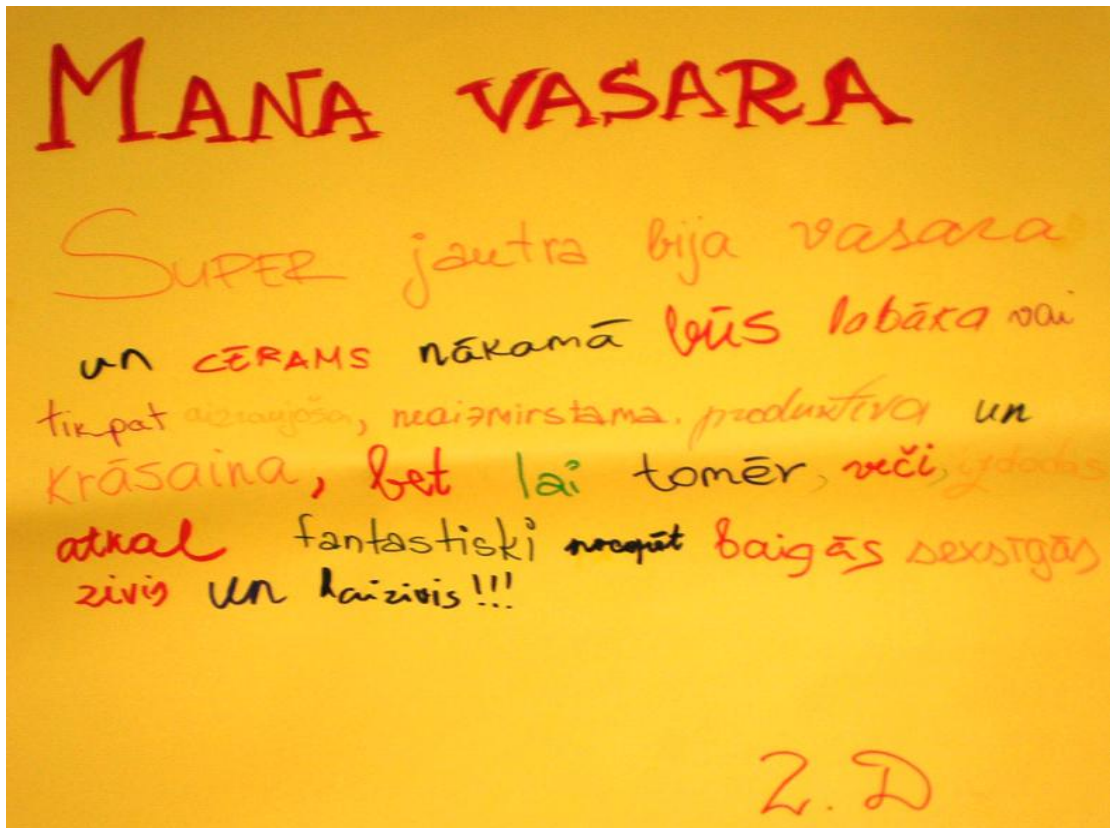 MANA VASARA
SUPER jautra bija vasara
un CĒRAMS nākamā būs labāka vai
tikpat aizraujoša, neaizmirstama. produktīva un
krāsaina, bet lai tomēr, veči, izdodas
atkal fantastiski nocopēt baigās sexsīgās
zivis un haizivis!!!
2. D